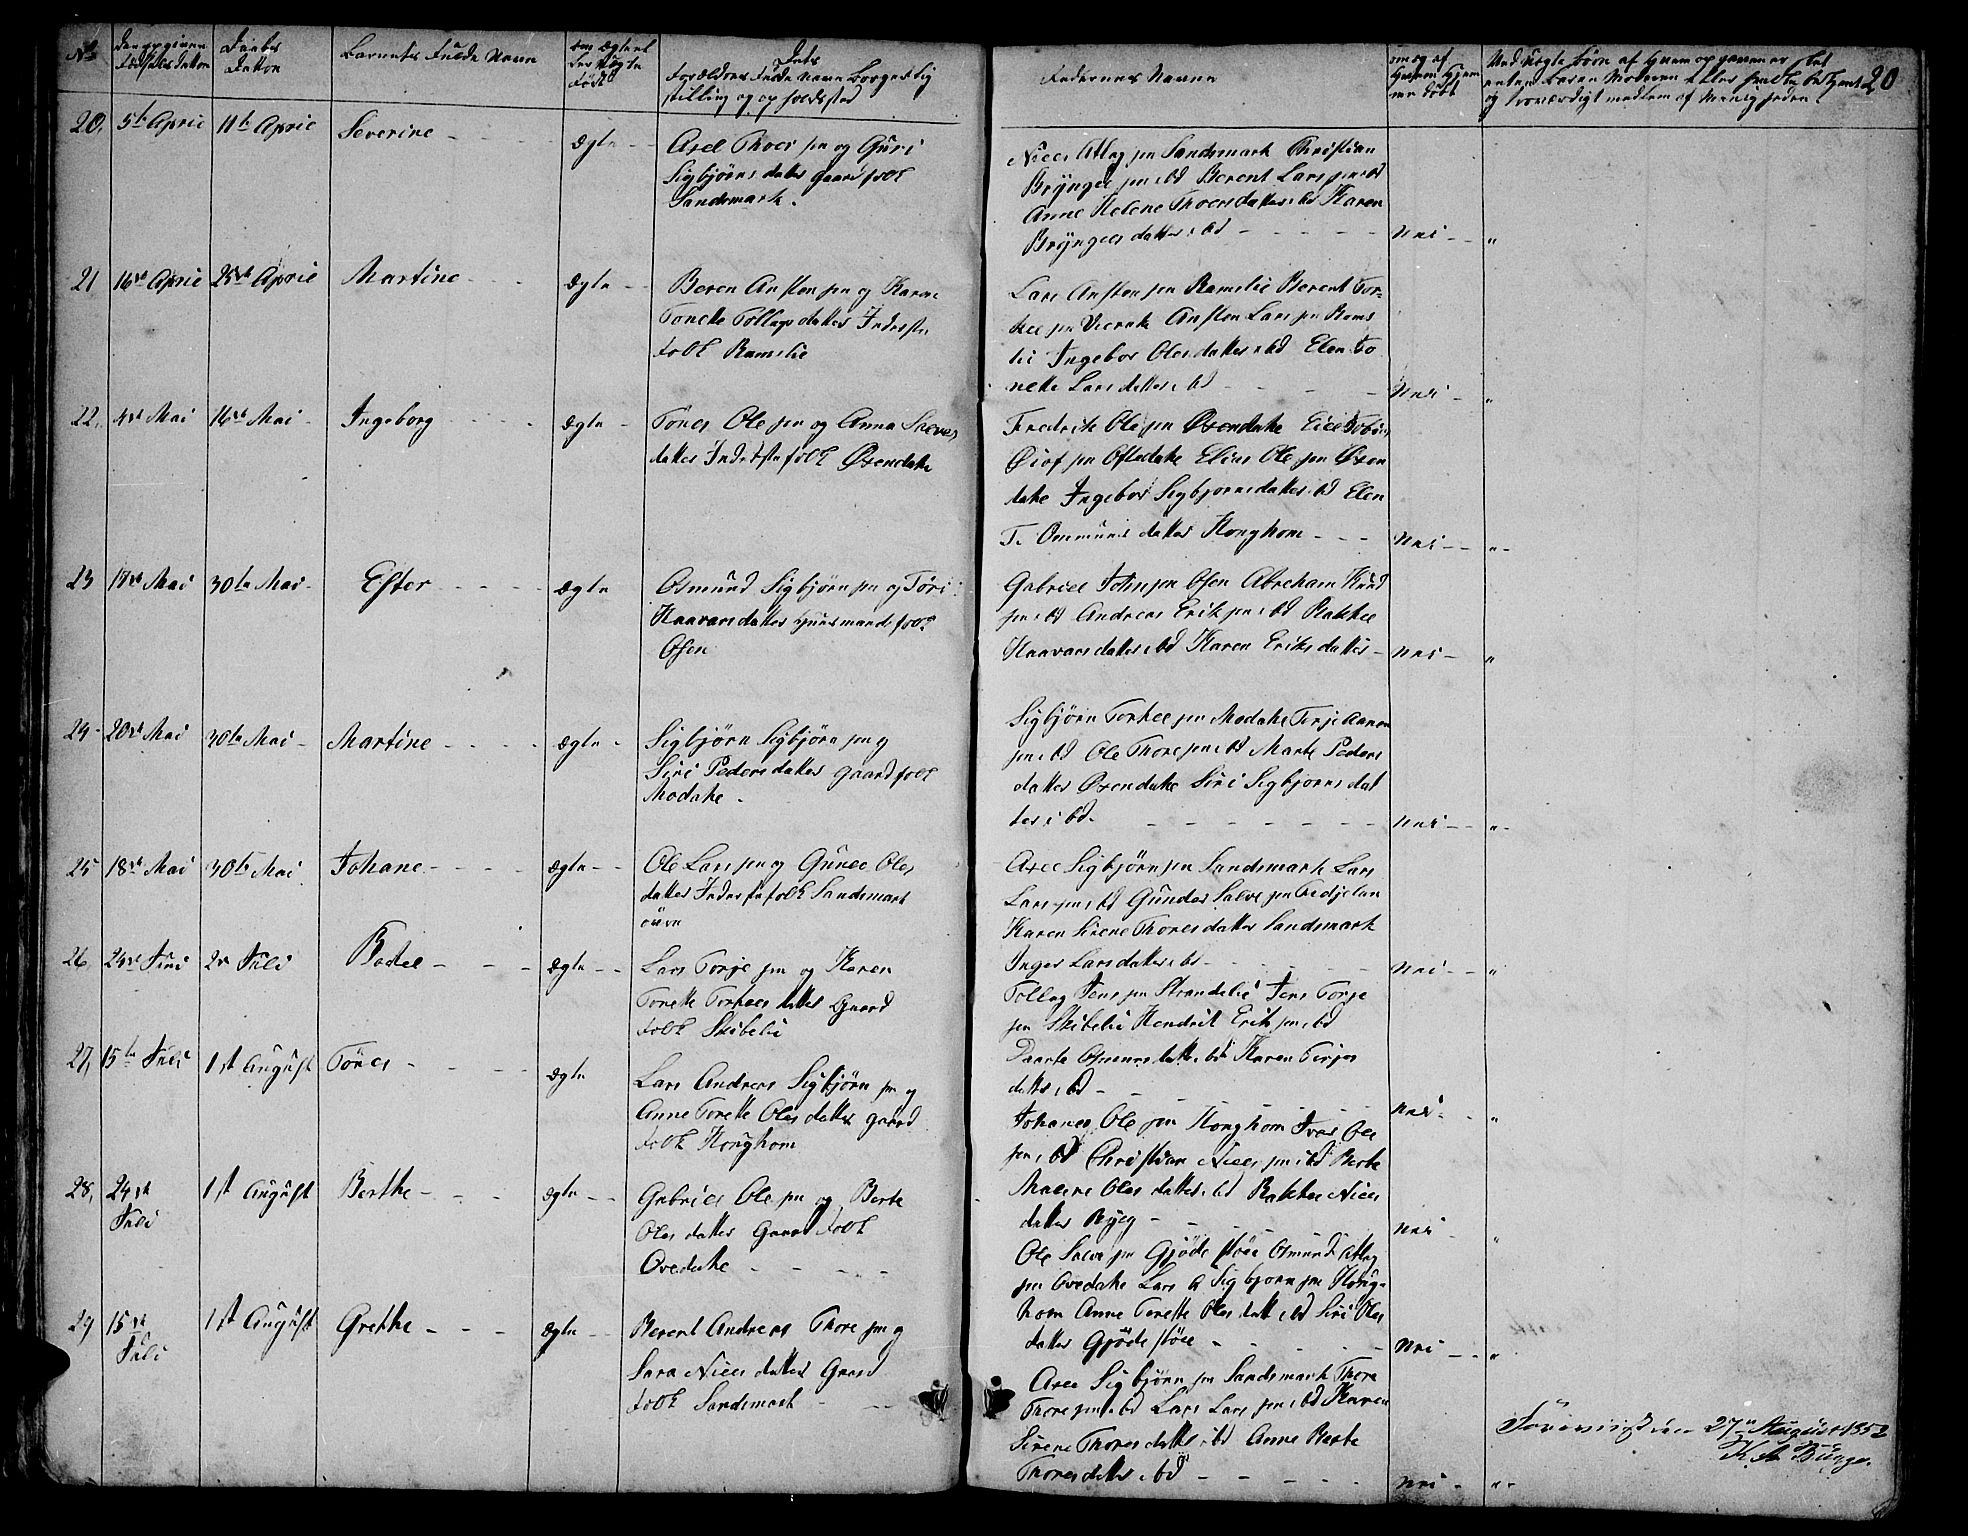 No
den opgivne Fødsels datton
Daabs Datton
Barnets Fulde Navn
om Ægte el der uægte Født
Dets Forældres Fulde Navn Borgerlig
stilling og opholdsted
Faddernes Navne
20
20, 5te April 11te April Severine - - ægte - - Axel Thors sen og Guri
Sigbjørns datter gaardfolk
Sandsmark.
Niels Atlag sen Sandsmark Christian
Brÿngel sen ibd Berent Lars sen ibd
Anne Helene Thorsdatter ibd Karen
Brÿngels datter ibd - - - - - Nei - - "
21 16de April 25de April Martine - - ægte - - Beren Ansten sen og Karen
Tonette Tollags datter Inderste
folk Ramslie
Lars Ansten sen Ramslie Berent Tor-
kel sen Ansten Lars sen Rams
lii Ingebor Olesdatter ibd Elen To
nette Lars datter ibd - - - - Nei - "
22, 4de Mai 16de Mai - Ingeborg - - - - ægte - Tønes Ole sen og Anna Salves
datter Inderstefolk Øxendahl
Fredrik Ole sen Øxendahl
sen Oftedahl Elias Ole sen Øxen
dahl Ingebor Sigbjørnsdatter ibd Elen
T. Ommuns datter Honghom - - - Nei - - " -
23 17de Mai 30te Mai - Ester - - - - ægte Osmund Sigbjørn sen og Tøri
Haavars datter Huusmandsfolk
Osen
Gabriel John sen Osen Abraham Knud
sen ibd Andreas Erik sen ibd Rakkel
Haavars datter ibd Karen Eriks datter - Nei - "
24 - 20de Mai 30te Mai - Martine - - - - ægte - Sigbjørn Sigbjørn sen og
Siri Peders datter gaardfolk
Modahl -
Sigbjørn Torkel sen Modahl Terje Aanen
sen ibd Ole Thore sen ibd Marte Peders
datter Øxendahl Siri Sigbjørns dat
ter ibd - - - - - - - - Nei - - " -
25 18de Mai 30te Mai Johane - - - - ægte - - Ole Lars sen og Gunel Oles
datter Inderstefolk Sandsmark
Axel Sigbjørn sen Sandsmark Lars
Lars sen ibd Gunder Salve sen
Karen Sirene Thores datter Sandsmark
Inger Lars datter ibd - - - - - Nei - - "
26, 24de Juni 2de Juli Bertel - - - ægte - - Lars Torje sen og Karen
Tonette Torkels datter Gaard
folk Skibelii
Tollag Jens sen Strandelii Jens Torje
sen Skibelii Hendrik Erik sen ibd
Osmunds datter ibd Karen Terjes
datter ibd - - - - - - - Nei - - "
27, 15te Juli 1st August Tønes - - - ægte Lars Andreas Sigbjørn sen og
Anne Tonette Oles datter gaard
folk Honghom
Johanes Ole sen Honghom Ivar Ole
sen ibd Christian Niels sen ibd Berte
Malene Oles datter ibd Rakkel Niels
datter - - - - - - Nei - "
28, 24de Juli 1st August Berthe - - - ægte - - Gabriel Ole sen og Berte
Oles datter Gaard folk
Ovedahl - - - -
Ole Salve sen Gjødestøl Osmund Atlag
sen Ovedahl Lars A Sigbjørn sen Hong-
hom Anne Tonette Oles datt ibd Siri Oles
datter Gjødestøl - - - - - Nei - - "
29 15de Juli 1st August Grethe - - - ægte - - Berent Andreas Thore sen og
Sara Niels datter Gaard
folk Sandsmark - - -
Axel Sigbjørn sen Sandsmark Thore
Thore sen ibd Lars Lars sen ibd Karen
Sirene Thores datter ibd Anne Berte
Thores datter ibd - - - - - Nei - " -
27de August 1852
K. A. Bugge.